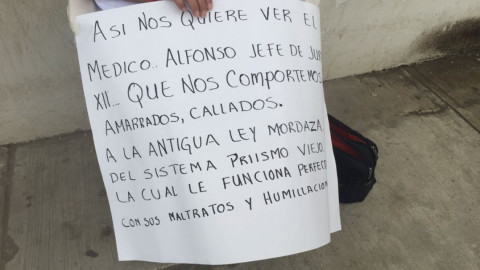 ASI NOS QUIERE VER EL
MEDICO.. ALFONSO JEFE DE JUR
XII... QUE NOS COMPORTEMOS
AMARRADOS, CALLADOS.
A LA ANTIGUA LEY MORDAZA
DEL SISTEMA PRIISMO VIEJO
LA CUAL LE FUNCIONA PERFECT
CON SUS MALTRATOS Y HUMILLACION